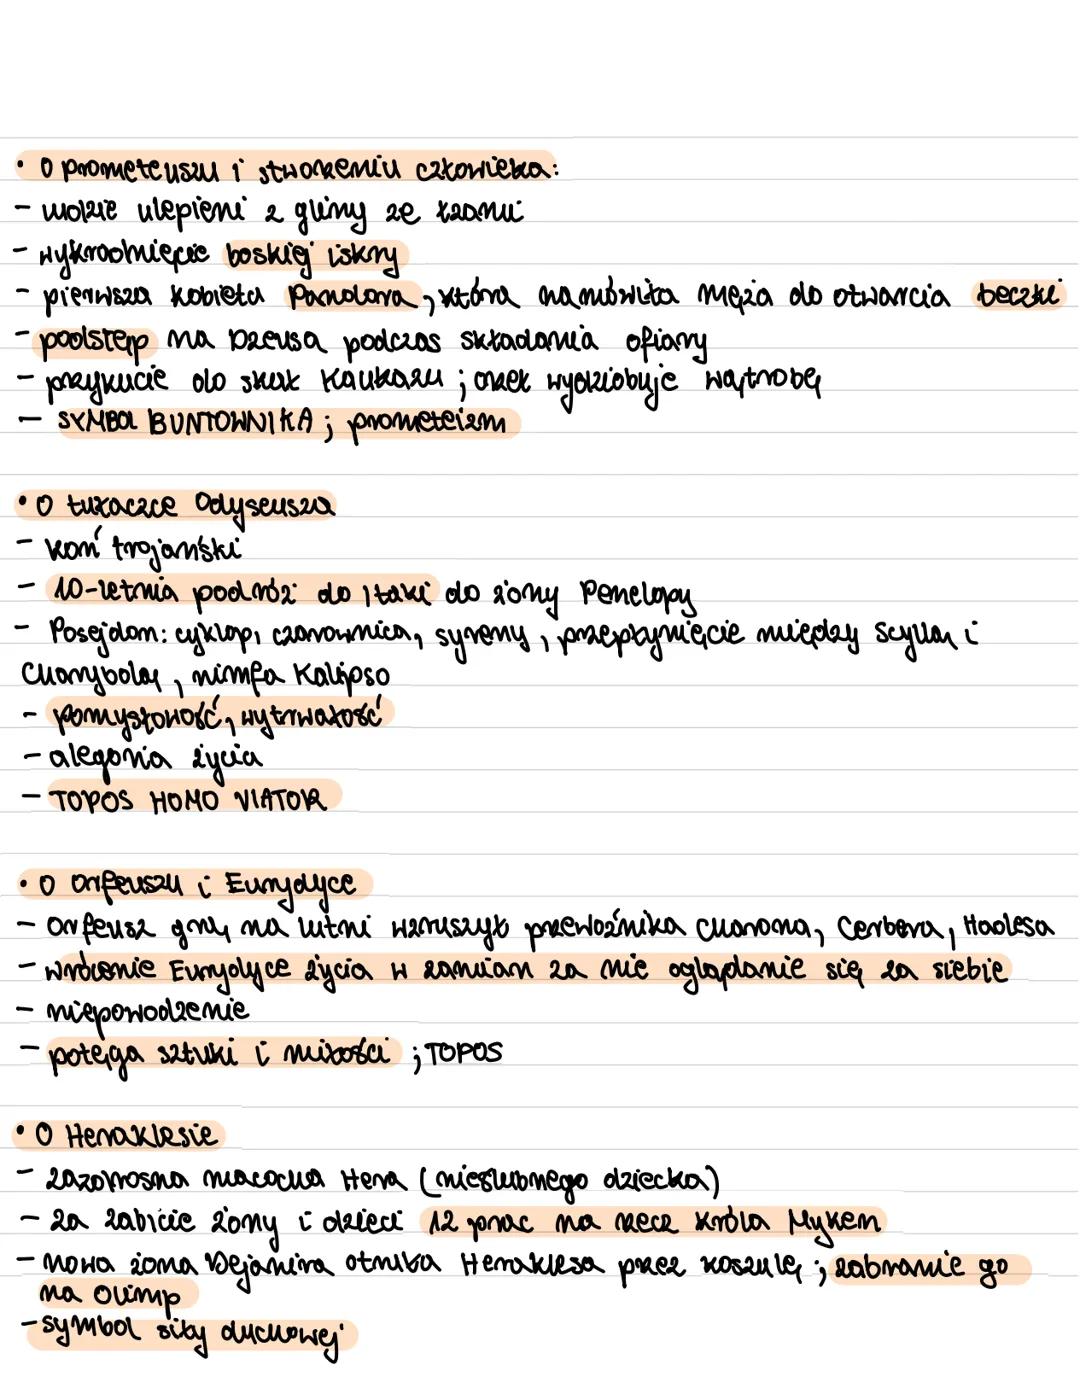 • O prometeuszu i stworzeniu człowieka:
- ludzie ulepieni z gliny ze łzami
- wykradnięcie boskiej iskry
- pierwsza kobieta Pandora, która namówiła męża do otwarcia beczki
- podstęp na Dzeusa podczas składania ofiary
- przykucie do skał Kaukazu ; orzeł wydziobuje wątrobę
- SYMBOL BUNTOWNIKA ; prometeizm
• O tułaczce Odyseusza
- koń trojański
- 10-letnia podróż do Itaki do żony Penelopy
- Posejdon: cyklop, czarownica, syreny, przepłynięcie między Scyllą i
Charybdą, nimfa Kalipso
- pomysłowość, wytrwałość
- alegoria życia
- TOPOS HOMO VIATOR
• O Orfeuszu i Eurydyce
- Orfeusz grą na lutni wzruszył przewoźnika Charona, Cerbera, Hadesa
- wrócenie Eurydyce życia w zamian za nie oglądanie się za siebie
- niepowodzenie
- potęga sztuki i miłości ; TOPOS
• O Heraklesie
- zazdrosna macocha Hera (nieślubnego dziecka)
- za zabicie żony i dzieci 12 prac na rzecz króla Myken
- nowa żona Dejanira otruła Heraklesa przez koszulę ; zabranie go
na Olimp
- symbol siły duchowej